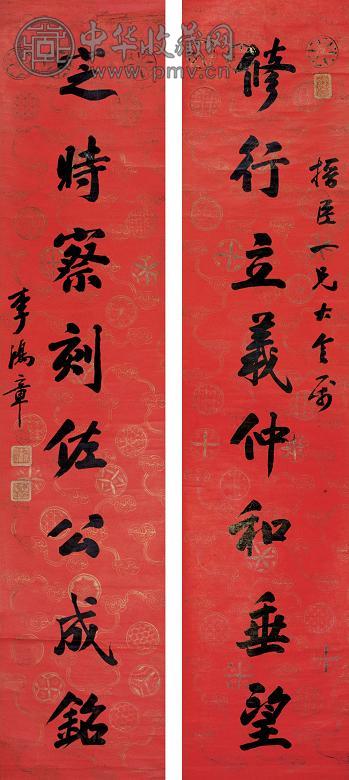 中华收藏网
www.pmv.cn
搢臣一兄大令属
脩行立義仲和垂望
定時察刻佐公成銘
李鴻章